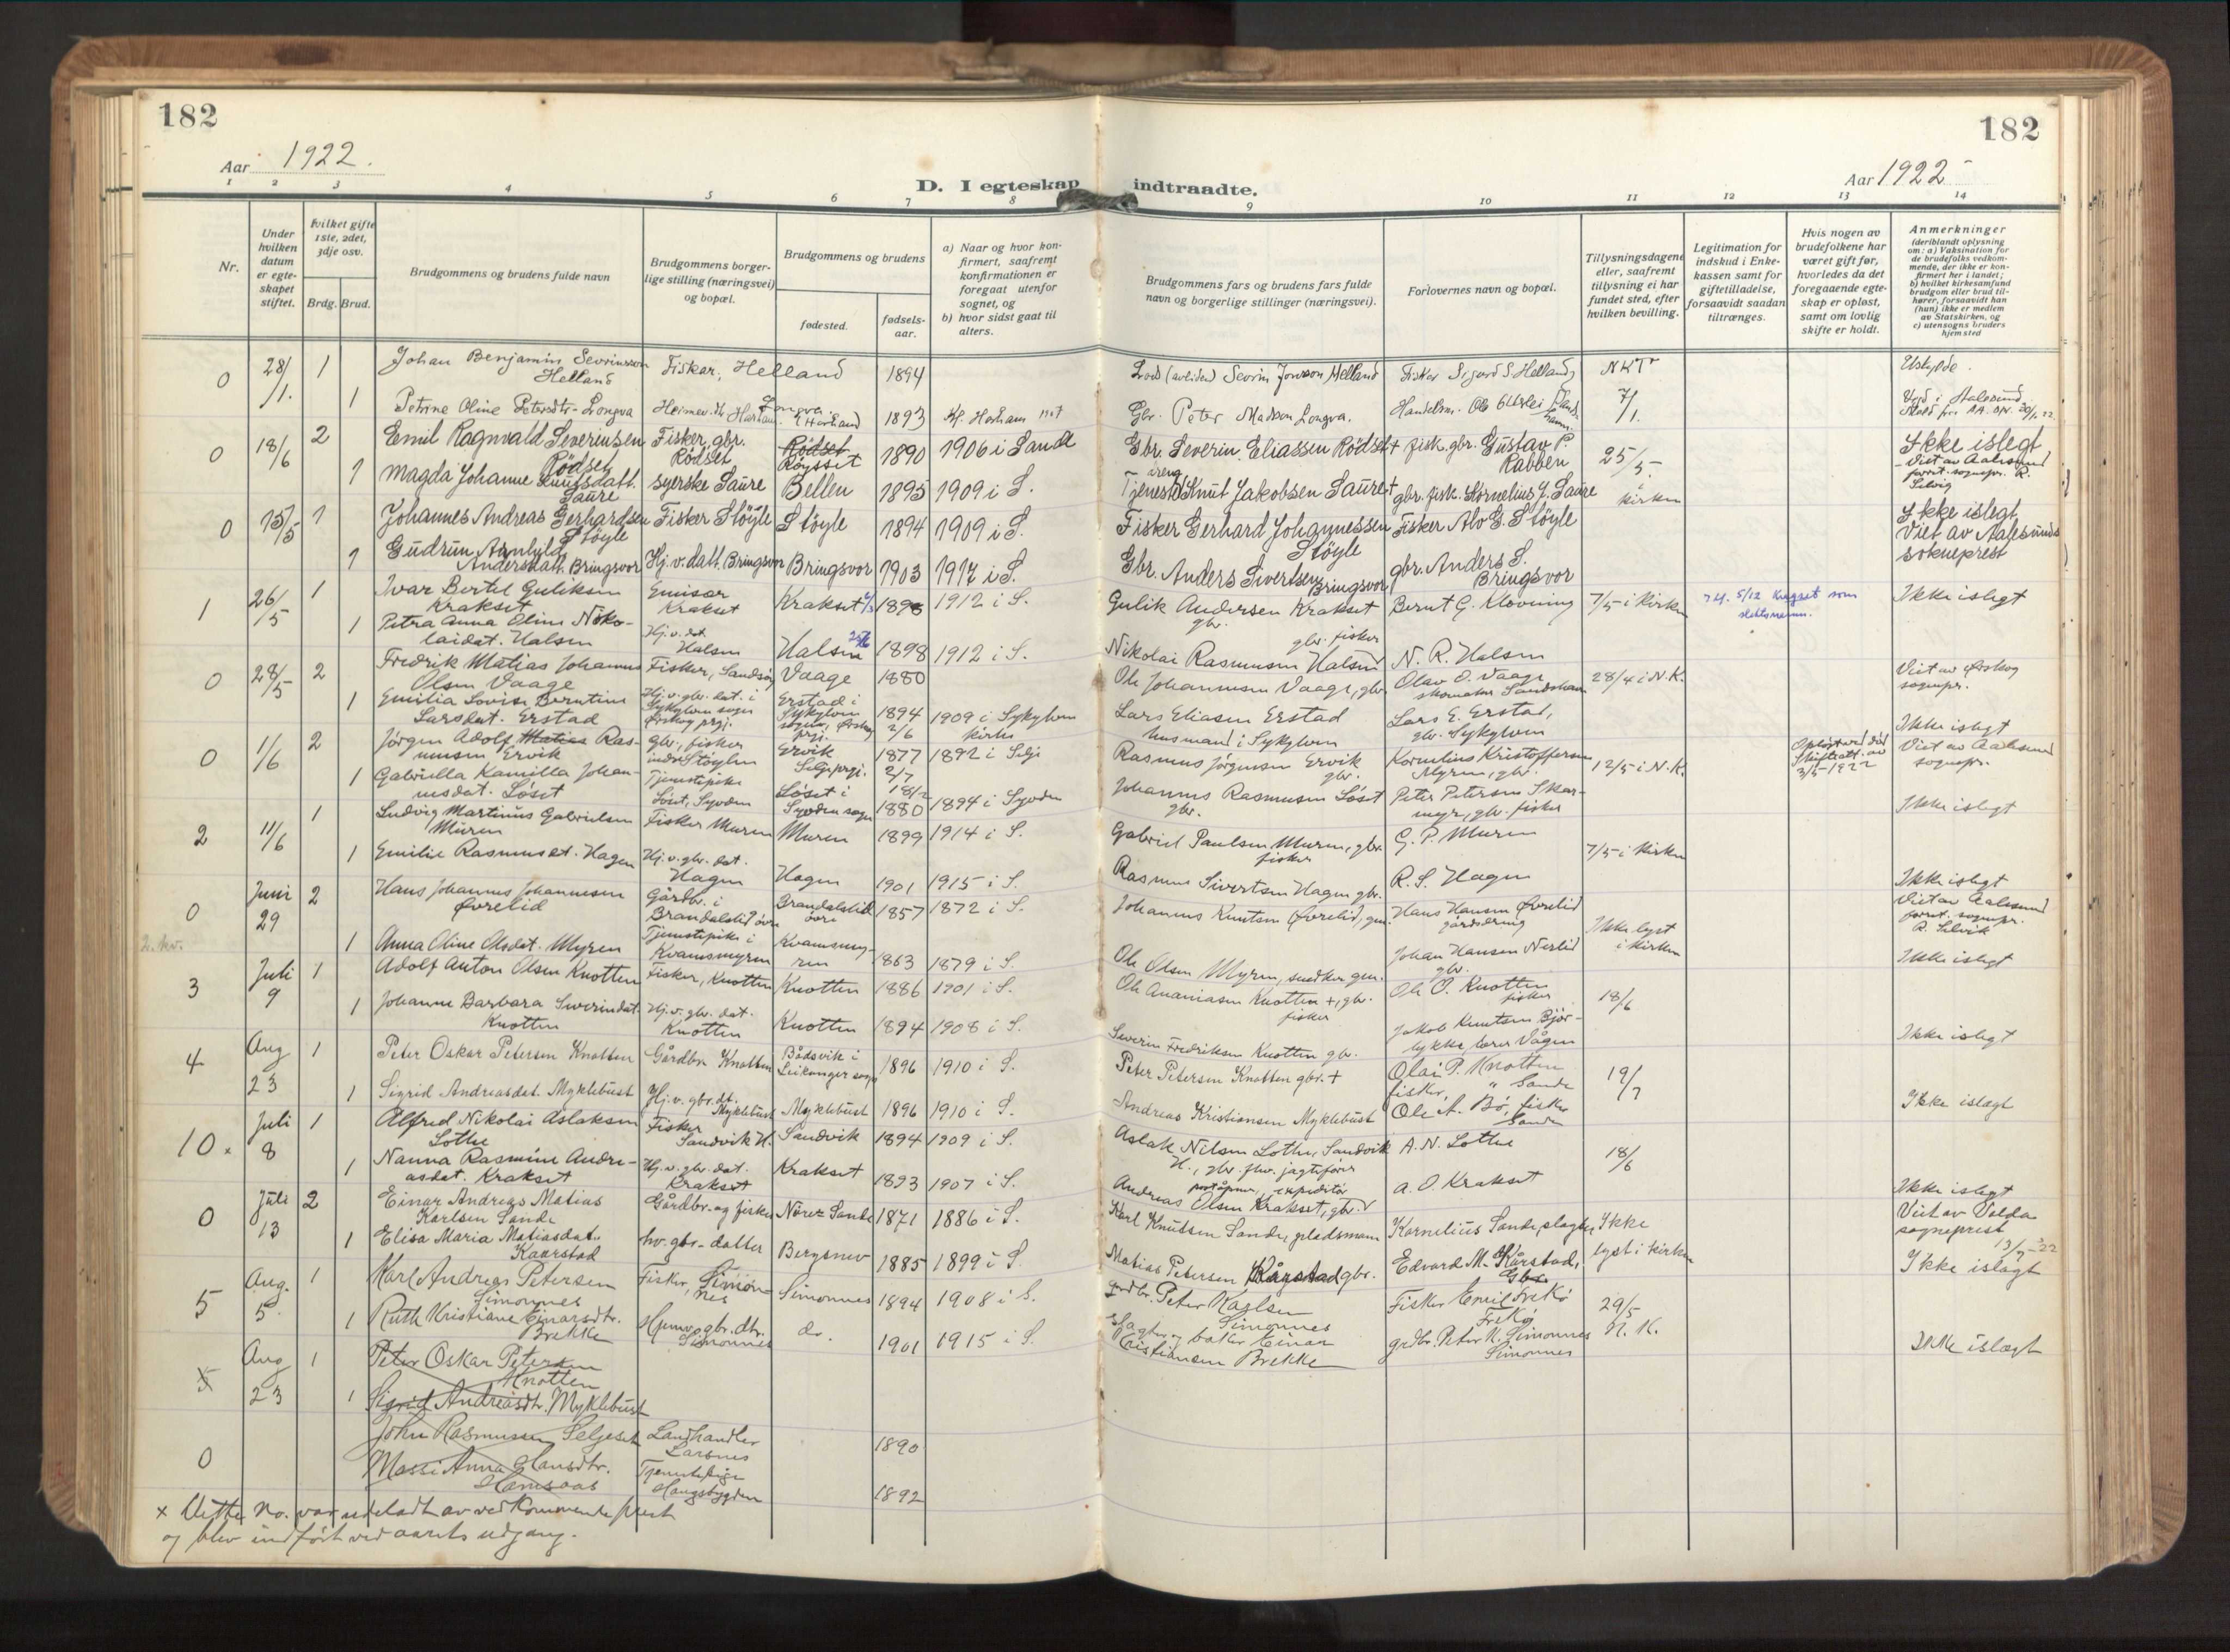 182
182
Aar 1922.
Aar 1922
D. I egteskap indtraadte.
1 2 3 4 5 6 7 8 9 10 11 12 13 14
Nr.
Under hvilken datum er egte-skapet stiftet.
hvilket gifte 1ste, 2det, 3dje osv.
Brdg. Brud.
Brudgommens og brudens fulde navn
Brudgommens borger-lige stilling (næringsvei) og bopæl.
Brudgommens og brudens
fødested.
fødsels-aar.
a) Naar og hvor kon-firmert, saafremt konfirmationen er foregaat utenfor sognet, og
b) hvor sidst gaat til alters.
Brudgommens fars og brudens fars fulde navn og borgerlige stillinger (næringsvei).
Forlovernes navn og bopæl.
Tillysningsdagene eller, saafremt tillysning ei har fundet sted, efter hvilken bevilling.
Legitimation for indskud i Enke-kassen samt for giftetilladelse, forsaavidt saadan tiltrænges.
Hvis nogen av brudefolkene har været gift før, hvorledes da det foregaaende egte-skap er opløst, samt om lovlig skifte er holdt.
Anmerkninger (deriblandt oplysning om: a) Vaksination for de brudefolks vedkom-mende, der ikke er kon-firmert her i landet; b) hvilket kirkesamfund brudgom eller brud til-hører, forsaavidt han (hun) ikke er medlem av Statskirken, og c) utensogns bruders hjemsted
0 28/1. 1 Johan Benjamin Sevrinsson Helland Fiskar, Helland 1894 Sevrin Jonsson Helland Fiskar Sigurd S. Helland Uskylde.
1 Petrine Oline Petersdtr. Longva Longva i Harham 1893 Gbr. Peter Madsen Longva. Handelsm. 7/1.
0 18/6 2 Emil Ragnvald Severinsen Rödset Fisker, gbr. Rödset Rödset Röysset 1890 1906 i Sande Gbr. Severin Eliassen Rödset + fisk. gbr. Gustav P. Rabben 25/5 Ikke islegt
1 Magda Johanne Knutsdatt. Saure syerske Saure Bellen 1895 1909 i S. Tjenestdreng Knut Jakobsen Saure + gbr. fisk. Kornelius J. Saure i kirken Viet av Aalesund forrt. sognepr. R. Selvig
0 15/5 1 Johannes Andreas Gerhardsen Støyle Fisker Støyle Støyle 1894 1909 i S. Fisker Gerhard Johannessen Støyle Fisker Alv G. Støyle Ikke islegt
1 Gudrun Arnhild Andersdatt. Bringsvor Hj.v. datt. Bringsvor Bringsvor 1903 1917 i S. Gbr. Anders Sivertsen Bringsvor gbr. Anders S. Bringsvor Viet av Aalesunds sokneprest
1 26/5 1 Ivar Bertel Guliksen Krakset Emisær Krakset Krakset 1898 1912 i S. Gulik Andersen Krakset gbr. Bernt G. Klovning 7/5 i Kirken Ikke islegt
1 Petra Anna Eline Nikolaidat. Halsen Hj.v. dat. Halsen Halsen 1898 1912 i S. Nikolai Rasmusen Halsen gbr. fisker N. R. Halsen
0 28/5 2 Fredrik Matias Johannes Olsen Vaage Fisker, Sandsøy Vaage 1880 Ole Johannesen Vaage, gbr. Olav O. Vaage skomaker Sandshamn 28/4 i N.K. Viet av Ørskog sognepr.
1 Emilia Lovise Berntine Larsdat. Erstad Hj.v. gbr. dat. i Sykylven sogn Ørskog prgj. Erstad i Sykylven sogn, Ørskog prgj. 1894 2/6 1909 i Sykylven kirke Lars Eliasen Erstad husmand i Sykylven Lars E. Erstad, gbr. Sykylven
0 11/6 2 Jørgen Adolf Matias Rasmusen Ervik gbr., fisker indre Støylen Ervik Selje prgj. 1877 2/7 1892 i Selje Rasmus Jørgensen Ervik gbr. Kornelius Kristoffersen Myren, gbr. 12/5 i N.K. Opløst ved død Skifteatt. av 3/5-1922 Ikke islegt Viet av Aalesund sognepr.
1 Gabriella Kamilla Johannesdat. Løset Tjenestepike Løset, Syvden Løset i Syvden sogn 18/2 1880 1894 i Syvden Johannes Rasmusen Løset gbr. Peter Petersen Skarmyr, gbr. fisker
2 11/6 1 Ludvig Martinus Gabrielsen Muren Fisker Muren Muren 1899 1914 i S. Gabriel Paulsen Muren, gbr. fisker G. P. Muren 7/5 i Kirken Ikke islegt
1 Emilie Rasmusdt. Hagen Hj.v. gbr. dat. Hagen Hagen 1901 1915 i S. Rasmus Sivertsen Hagen gbr. R. S. Hagen
0 Juni 29 2 Hans Johannes Johannesen Øvrelid Gårdbr. i Brandalslid øvre Brandalslid øvre 1857 1872 i S. Johannes Knutsen Øvrelid, gm. Hans Hansen Øvrelid gårddreng Ikke lyst i kirken Ikke islegt Viet av Aalesund forrt. sognepr. R. Selvik
1 Anna Oline Olsdat. Myren Tjenestepike i Kvamsmyren Kvamsmyren 1863 1879 i S. Ole Olsen Myren, snedker gm. Johan Hansen Nerlid gbr.
3 Juli 9 1 Adolf Anton Olsen Knotten Fisker, Knotten Knotten 1886 1901 i S. Ole Ananiasen Knotten +, gbr. fisker Ole O. Knotten fisker 18/6 Ikke islegt
1 Johanne Barbara Severindat. Knotten Hj.v. gbr. dat. Knotten Knotten 1894 1908 i S. Severin Fredriksen Knotten gbr. Jakob Knutsen Bjørlykke, lærer Vågen
4 Aug 23 1 Peter Oskar Petersen Knotten Gårdbr. Knotten Bådsvik i Leikanger sogn 1896 1910 i S. Peter Petersen Knotten gbr. + Olai P. Knotten fisker, " Sande 19/7 Ikke islegt
1 Sigrid Andreasdat. Myklebust Hj.v. gbr. dt. Myklebust Myklebust 1896 1910 i S. Andreas Kristiansen Myklebust Ole A. Bø, fisker Sande
10 x Juli 8 1 Alfred Nikolai Aslaksen Lothe Fisker Sandvik H. Sandvik 1894 1909 i S. Aslak Nilsen Lothe, Sandvik H., gbr. fhv. jagtefører poståpner, expeditør A. N. Lothe 18/6 Ikke islegt
1 Nanna Rasmine Andreasdat. Krakset Hj.v. gbr. dat. Krakset Krakset 1893 1907 i S. Andreas Olsen Krakset, gbr. A. O. Krakset
0 Juli 13 2 Einar Andreas Matias Karlsen Sande Gårdbr. og fisker Nöre Sande 1871 1886 i S. Karl Knutsen Sande, pladsmann Kornelius Sande, slagter, Ikke lyst i kirken Ikke islegt Viet av Volda sogneprest 13/7-22
1 Elisa Maria Matiasdat. Kaarstad hv. gbr-datter Bergsnev 1885 1899 i S. Matias Petersen Kårstad gbr. Edvard M. Kårstad, Gbr.
5 Aug. 5. 1 Karl Andreas Petersen Simonnes Fisker, Simonnes Simonnes 1894 1908 i S. grdbr. Peter Karlsen Simonnes Fisker Emil Frekö Frekö 29/5 N. K. Ikke islagt
1 Ruth Kristiane Einarsdtr. Brekke Hjemv. gbr. dtr. Simonnes do. 1901 1915 i S. Slagter og baker Einar Cristiansen Brekke grdbr. Peter K. Simonnes Simonnes
5 Aug 23 1 Peter Oskar Petersen Knotten Ikke islagt
1 Sigrid Andreasdtr. Myklebust
0 John Rasmussen Seljeset Landhandler Larsnes 1890
Massi Anna Hansdtr. Hamsaas Tjenestepige Haugsbygden 1892
x Dette No. var udeladt av vedkommende prest
og blev indført ved aarets udgang.